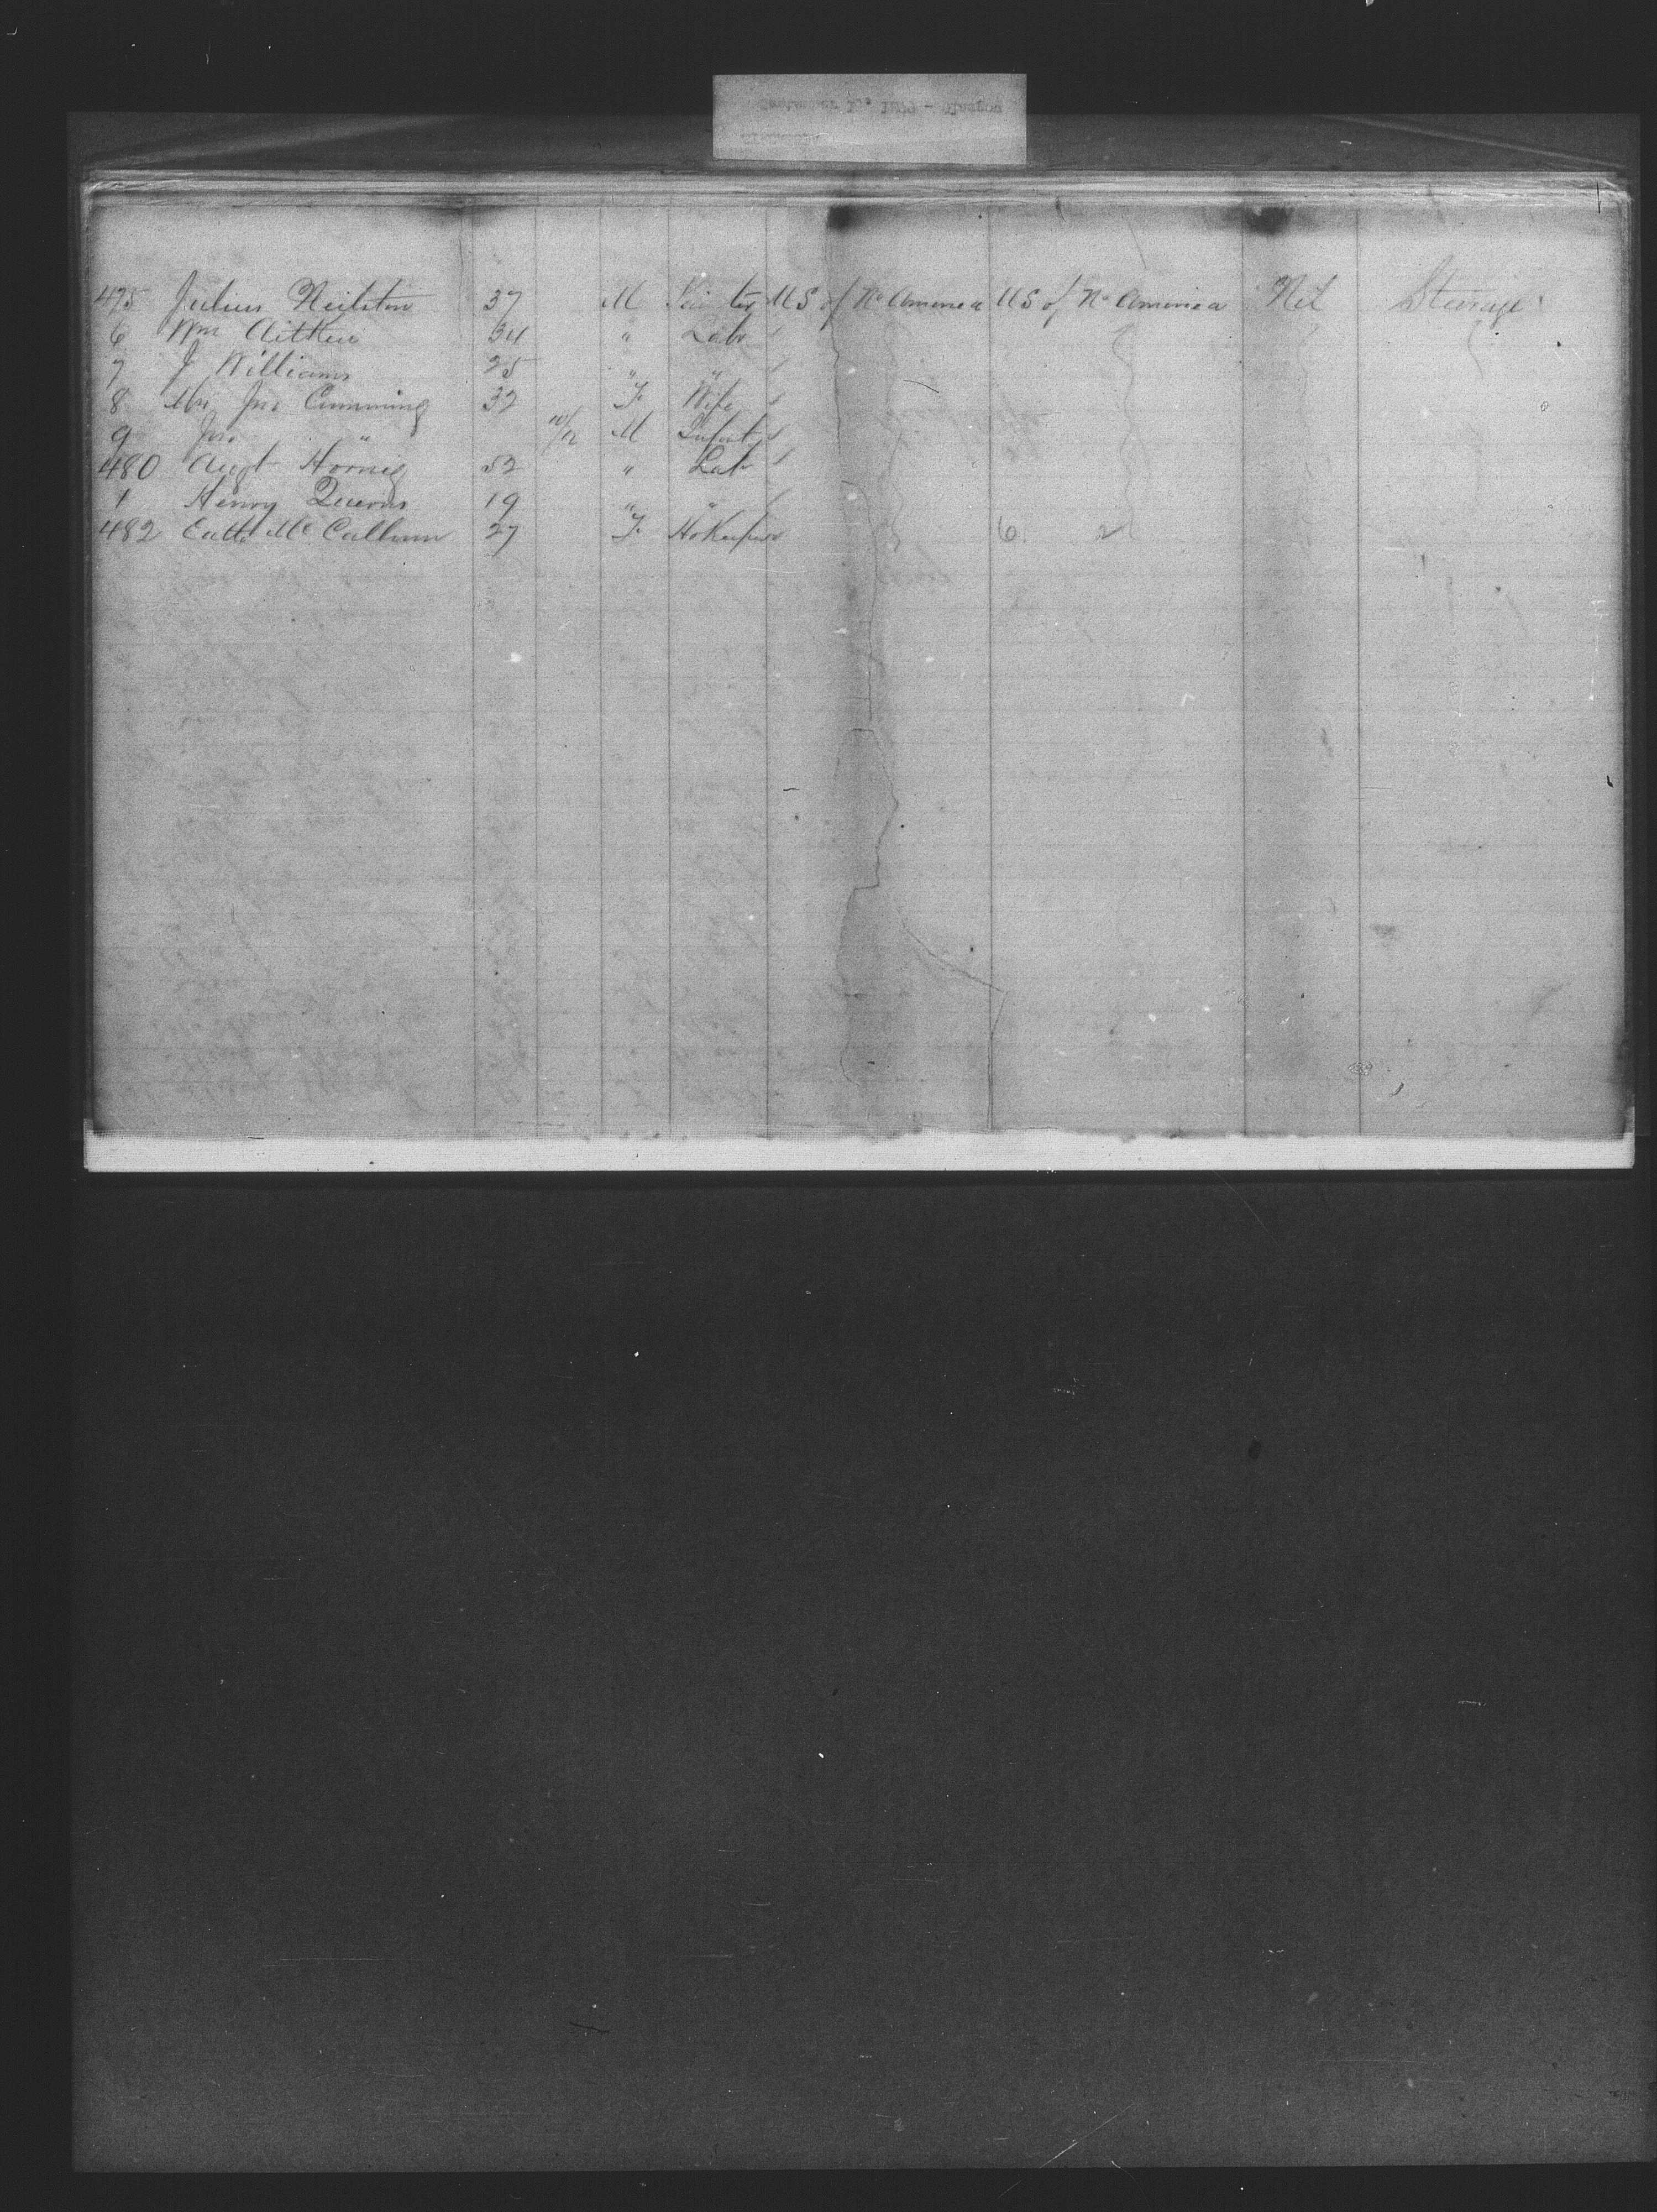 475 Julius Neilston 37 M Painter U S of No America U S of No America Nil Steerage
6 Wm Aitken 34 " Labr
7 J Williams 25 " "
8 Mrs Jno Cumming 32 F Wife
9 Jno. " 10/12 M Infant
480 Augt Hornig 52 " Labr
1 Henry 19 " "
482 Cath Mc Callum 27 F HoKeeper 6 2